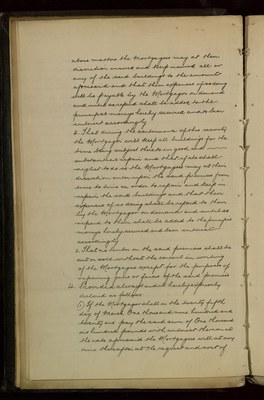 above matters the Mortgagees may at their
discretion insure and keep insured all or
any of the said buildings to the amount
aforesaid and that the expenses of so doing
will be payable by the Mortgagor on demand
and until so repaid shall be added to the
principal money hereby secured and bear
interest accordingly
2. That during the continuance of this security
the Mortgagor will keep all buildings for the
time being subject thereto in good and
substantial repair and that if he shall
neglect to do so the Mortgagees may at their
discretion enter upon the said premises from
time to time in order to repair and keep in
repair the said buildings and that the
expenses of so doing shall be repaid to them
by the Mortgagor on demand and until so
repaid to them shall be added to the principal
money hereby secured and bear interest
accordingly
3. That no timber on the said premises shall be
cut or sold without the consent in writing
of the Mortgagees except for the purposes of
repairing gates or fences of the said premises
4. Provided always and it is hereby expressly
declared as follows
(1) If the Mortgagor shall on the twenty fifth
day of March One thousand nine hundred and
twenty one pay the said sum of One thousand
six hundred pounds with interest thereon at
the rate aforesaid the Mortgagees will at any
time thereafter at the request and cost of